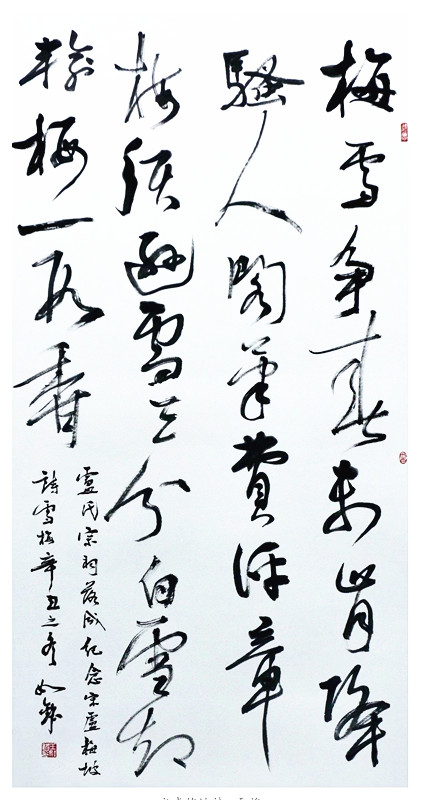 梅雪爭春未肯降
騷人閣筆費評章
梅須遜雪三分白雪却
輸梅一段香
盧氏宗祠落成紀念宋盧梅坡
詩雪梅辛丑之冬